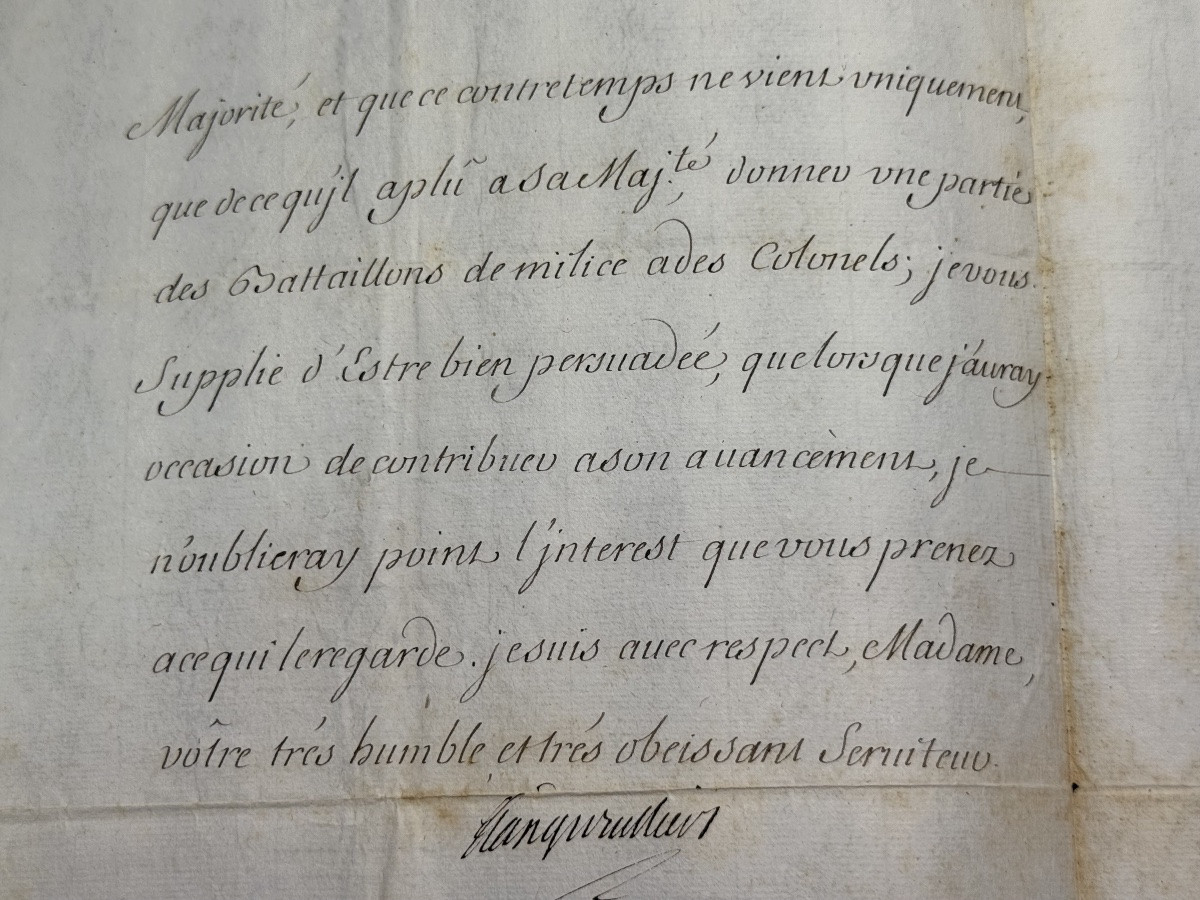 Majorité, et que ce contretemps ne vient vniquement,
que de ce qu'jl a plû a Sa Maj.té donner vne partie
des Battaillons de milice a des Colonels; je vous
Supplie d'Estre bien persuadée, que lorsque j'auray
occasion de contribuer a son auancement, je
n'oublieray point l'jnterest que vous prenez
a ce qui le regarde. je suis auec respect, Madame,
vôtre trés humble et trés obeissant Seruiteur.